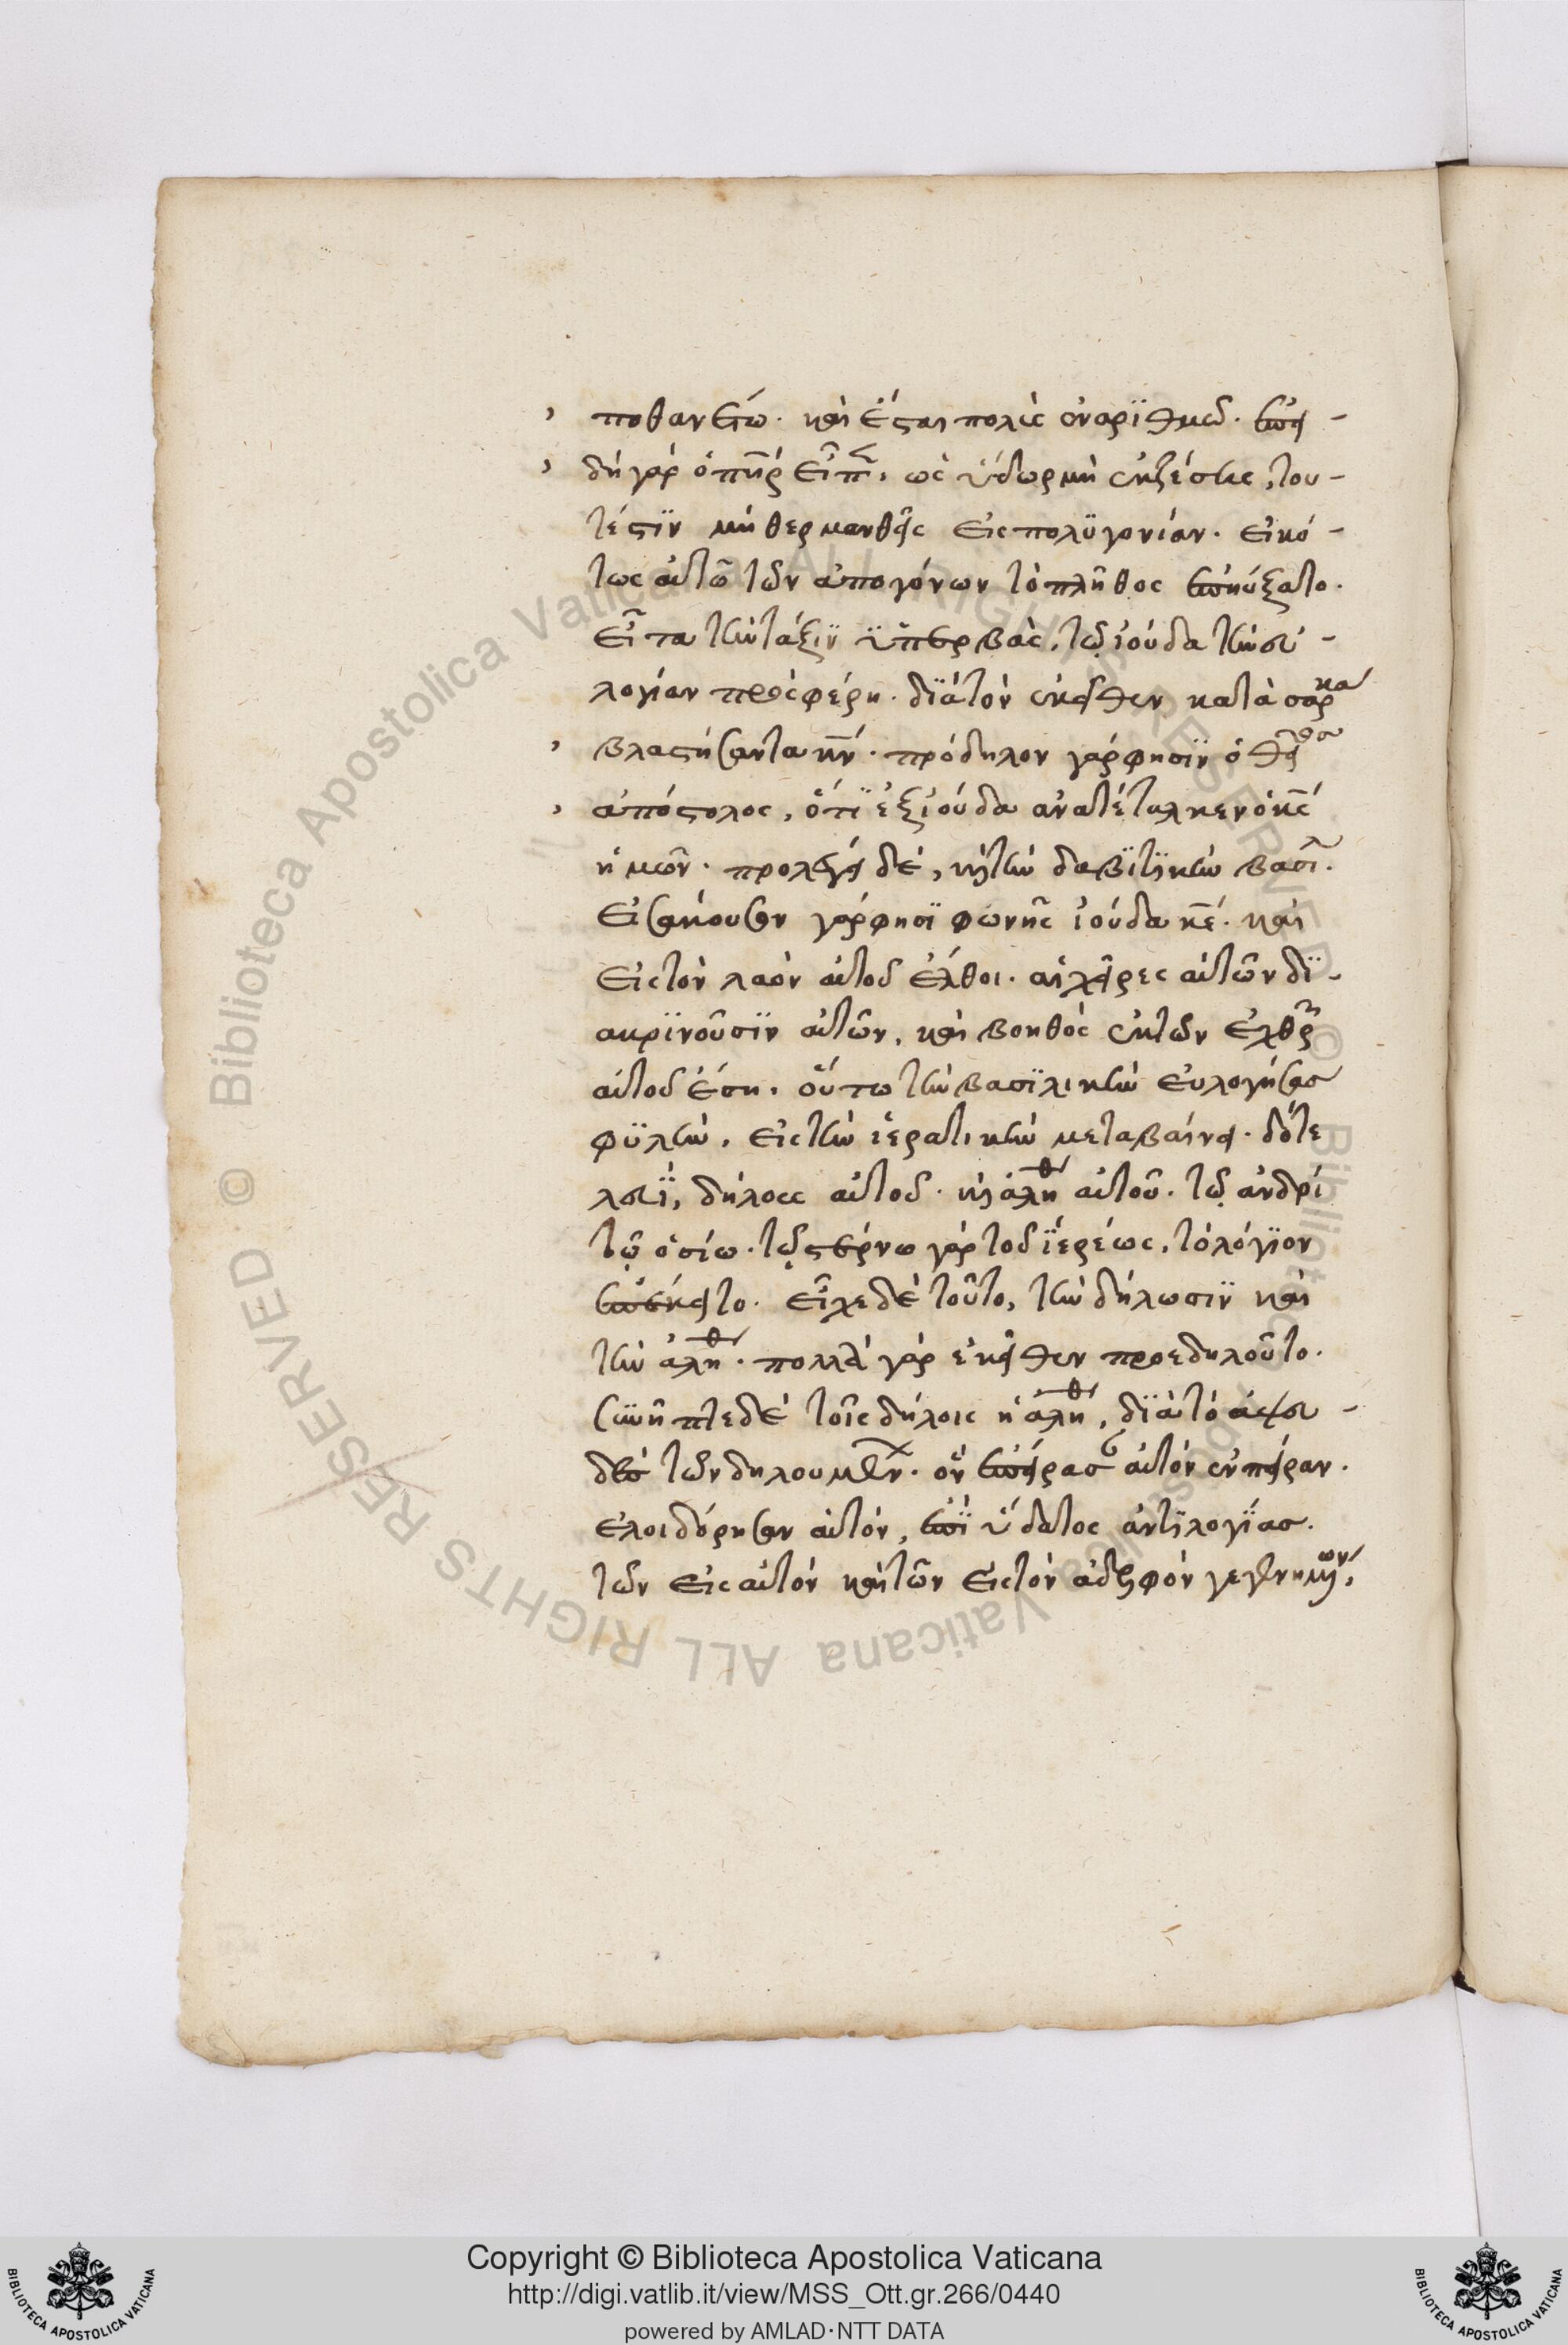 ποθανέτω. καὶ ἔσται πολὺς ἐν ἀριθμῶ. ἐπει-
δὴ γὰρ ὁ πηρ εἶπε, ὡς ὕδωρ μὴ ἐκζέσῃς, του-
τέστιν μὴ θερμανθῇς εἰς πολυγονίαν. εἰκό-
τως αὐτῶ τῶν ἀπογόνων τὸ πλῆθος ἐπηύξατο.
εἶτα τὴν τάξιν ὑπερβὰς, τῷ ἰούδα τὴν εὐ-
λογίαν προσφέρει. διὰ τὸν ἐκεῖθεν κατὰ σάρκα
βλαστήσαντα κν. πρόδηλον γάρ φησιν ὁ θεῖος
ἀπόστολος, ὅτι ἐξ ἰούδα ἀνατέταλκεν ὁ κς
ἡμῶν. προλέγει δέ, καὶ τὴν δαβιτικὴν βασι.
εἰσάκουσον γάρ φησι φωνῆς ἰούδα κε. καὶ
εἰς τὸν λαὸν αὐτοῦ ἔλθοι. αἱ χεῖρες αὐτῶν δι-
ακρινοῦσιν αὐτῶν, καὶ βοηθὸς ἐκ τῶν ἐχθρ
αὐτοῦ ἔση. οὕτω τὴν βασιλικὴν εὐλογήσας
φυλὴν, εἰς τὴν ἱερατικὴν μεταβαίνει. δότε
λευΐ, δήλους αὐτοῦ. καὶ ἀλήθ αὐτοῦ. τῷ ἀνδρὶ
τῷ ὁσίω. τῷ στέρνω γὰρ τοῦ ἱερέως, τὸ λόγιον
ἐπέκειτο. εἶχε δὲ τοῦτο, τὴν δήλωσιν καὶ
τὴν ἀλήθ. πολλὰ γὰρ ἐκεῖθεν προεδηλοῦτο.
συνῆπτε δὲ τοῖς δήλοις ἡ ἀλήθ, διὰ τὸ ἀψευ-
δὲς τῶν δηλουμένων. ὃν ἐπείρασαν αὐτὸν ἐν πείραν.
ἐλοιδόρησαν αὐτὸν, ἐπὶ ὕδατος ἀντιλογίας.
τῶν εἰς αὐτὸν καὶ τῶν εἰς τὸν ἀδελφὸν γεγενημένων,
Copyright © Biblioteca Apostolica Vaticana
http://digi.vatlib.it/view/MSS_Ott.gr.266/0440
powered by AMLAD·NTT DATA